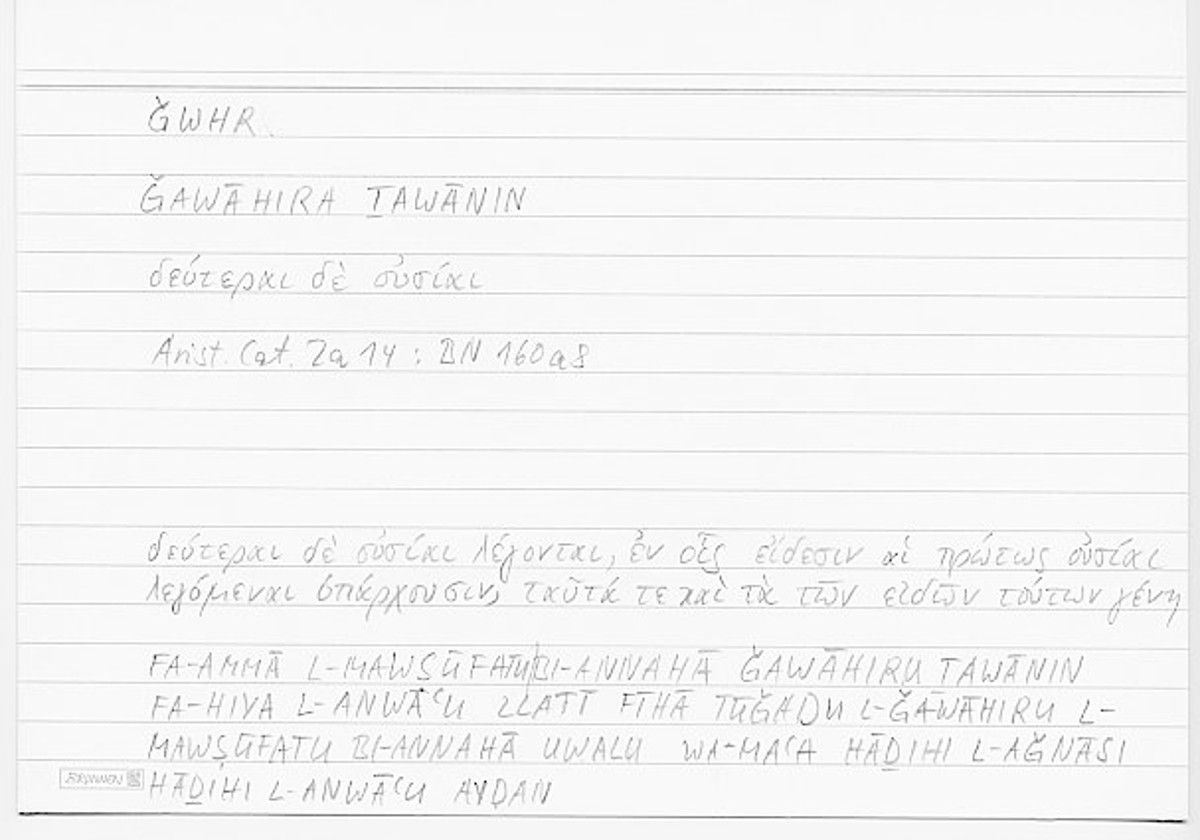 ǦWHR
ǦAWĀHIRA ṮAWĀNIN
δεύτεραι δὲ οὐσίαι
Arist. Cat. 2a 14 : BN 160a8
δεύτεραι δὲ οὐσίαι λέγονται, ἐν οἷς εἴδεσιν αἱ πρώτως οὐσίαι
λεγόμεναι ὑπάρχουσιν, ταῦτά τε καὶ τὰ τῶν εἰδῶν τούτων γένη
FA-AMMĀ L-MAWṢŪFATU BI-ANNAHĀ ǦAWĀHIRU TAWĀNIN
FA-HIYA L-ANWĀʿU LLATĪ FĪHĀ TŪǦADU L-ǦAWĀHIRU L-
MAWṢŪFATU BI-ANNAHĀ UWALU WA-MAʿA HĀḎIHI L-AǦNĀSI
HĀḎIHI L-ANWĀʿU AYḌAN
BRUNNEN